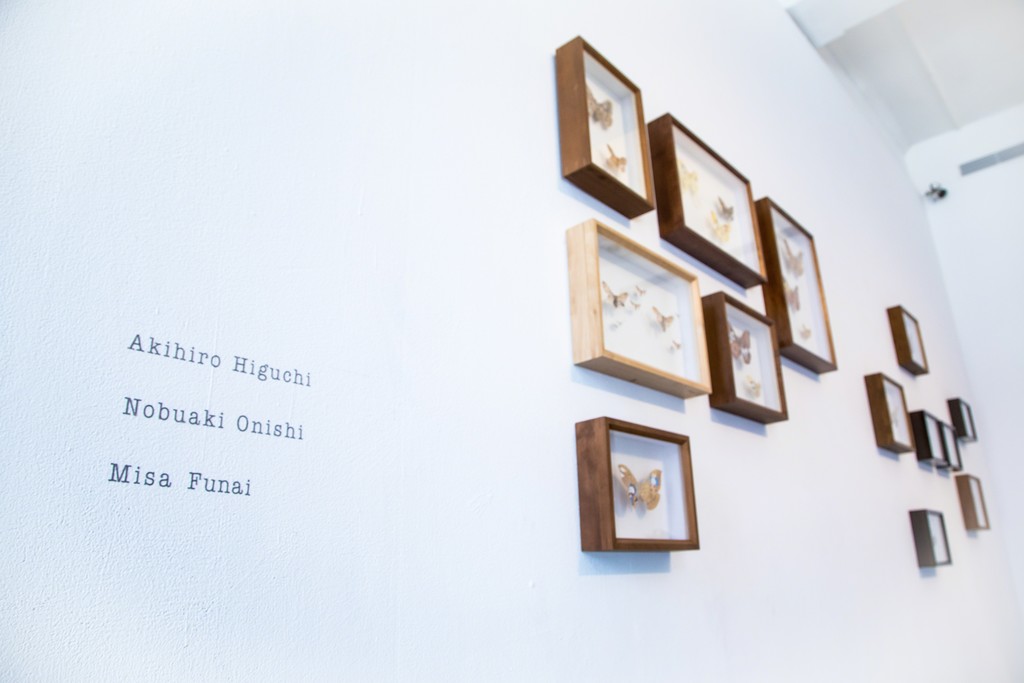 Akihiro Higuchi
Nobuaki Onishi
Misa Funai